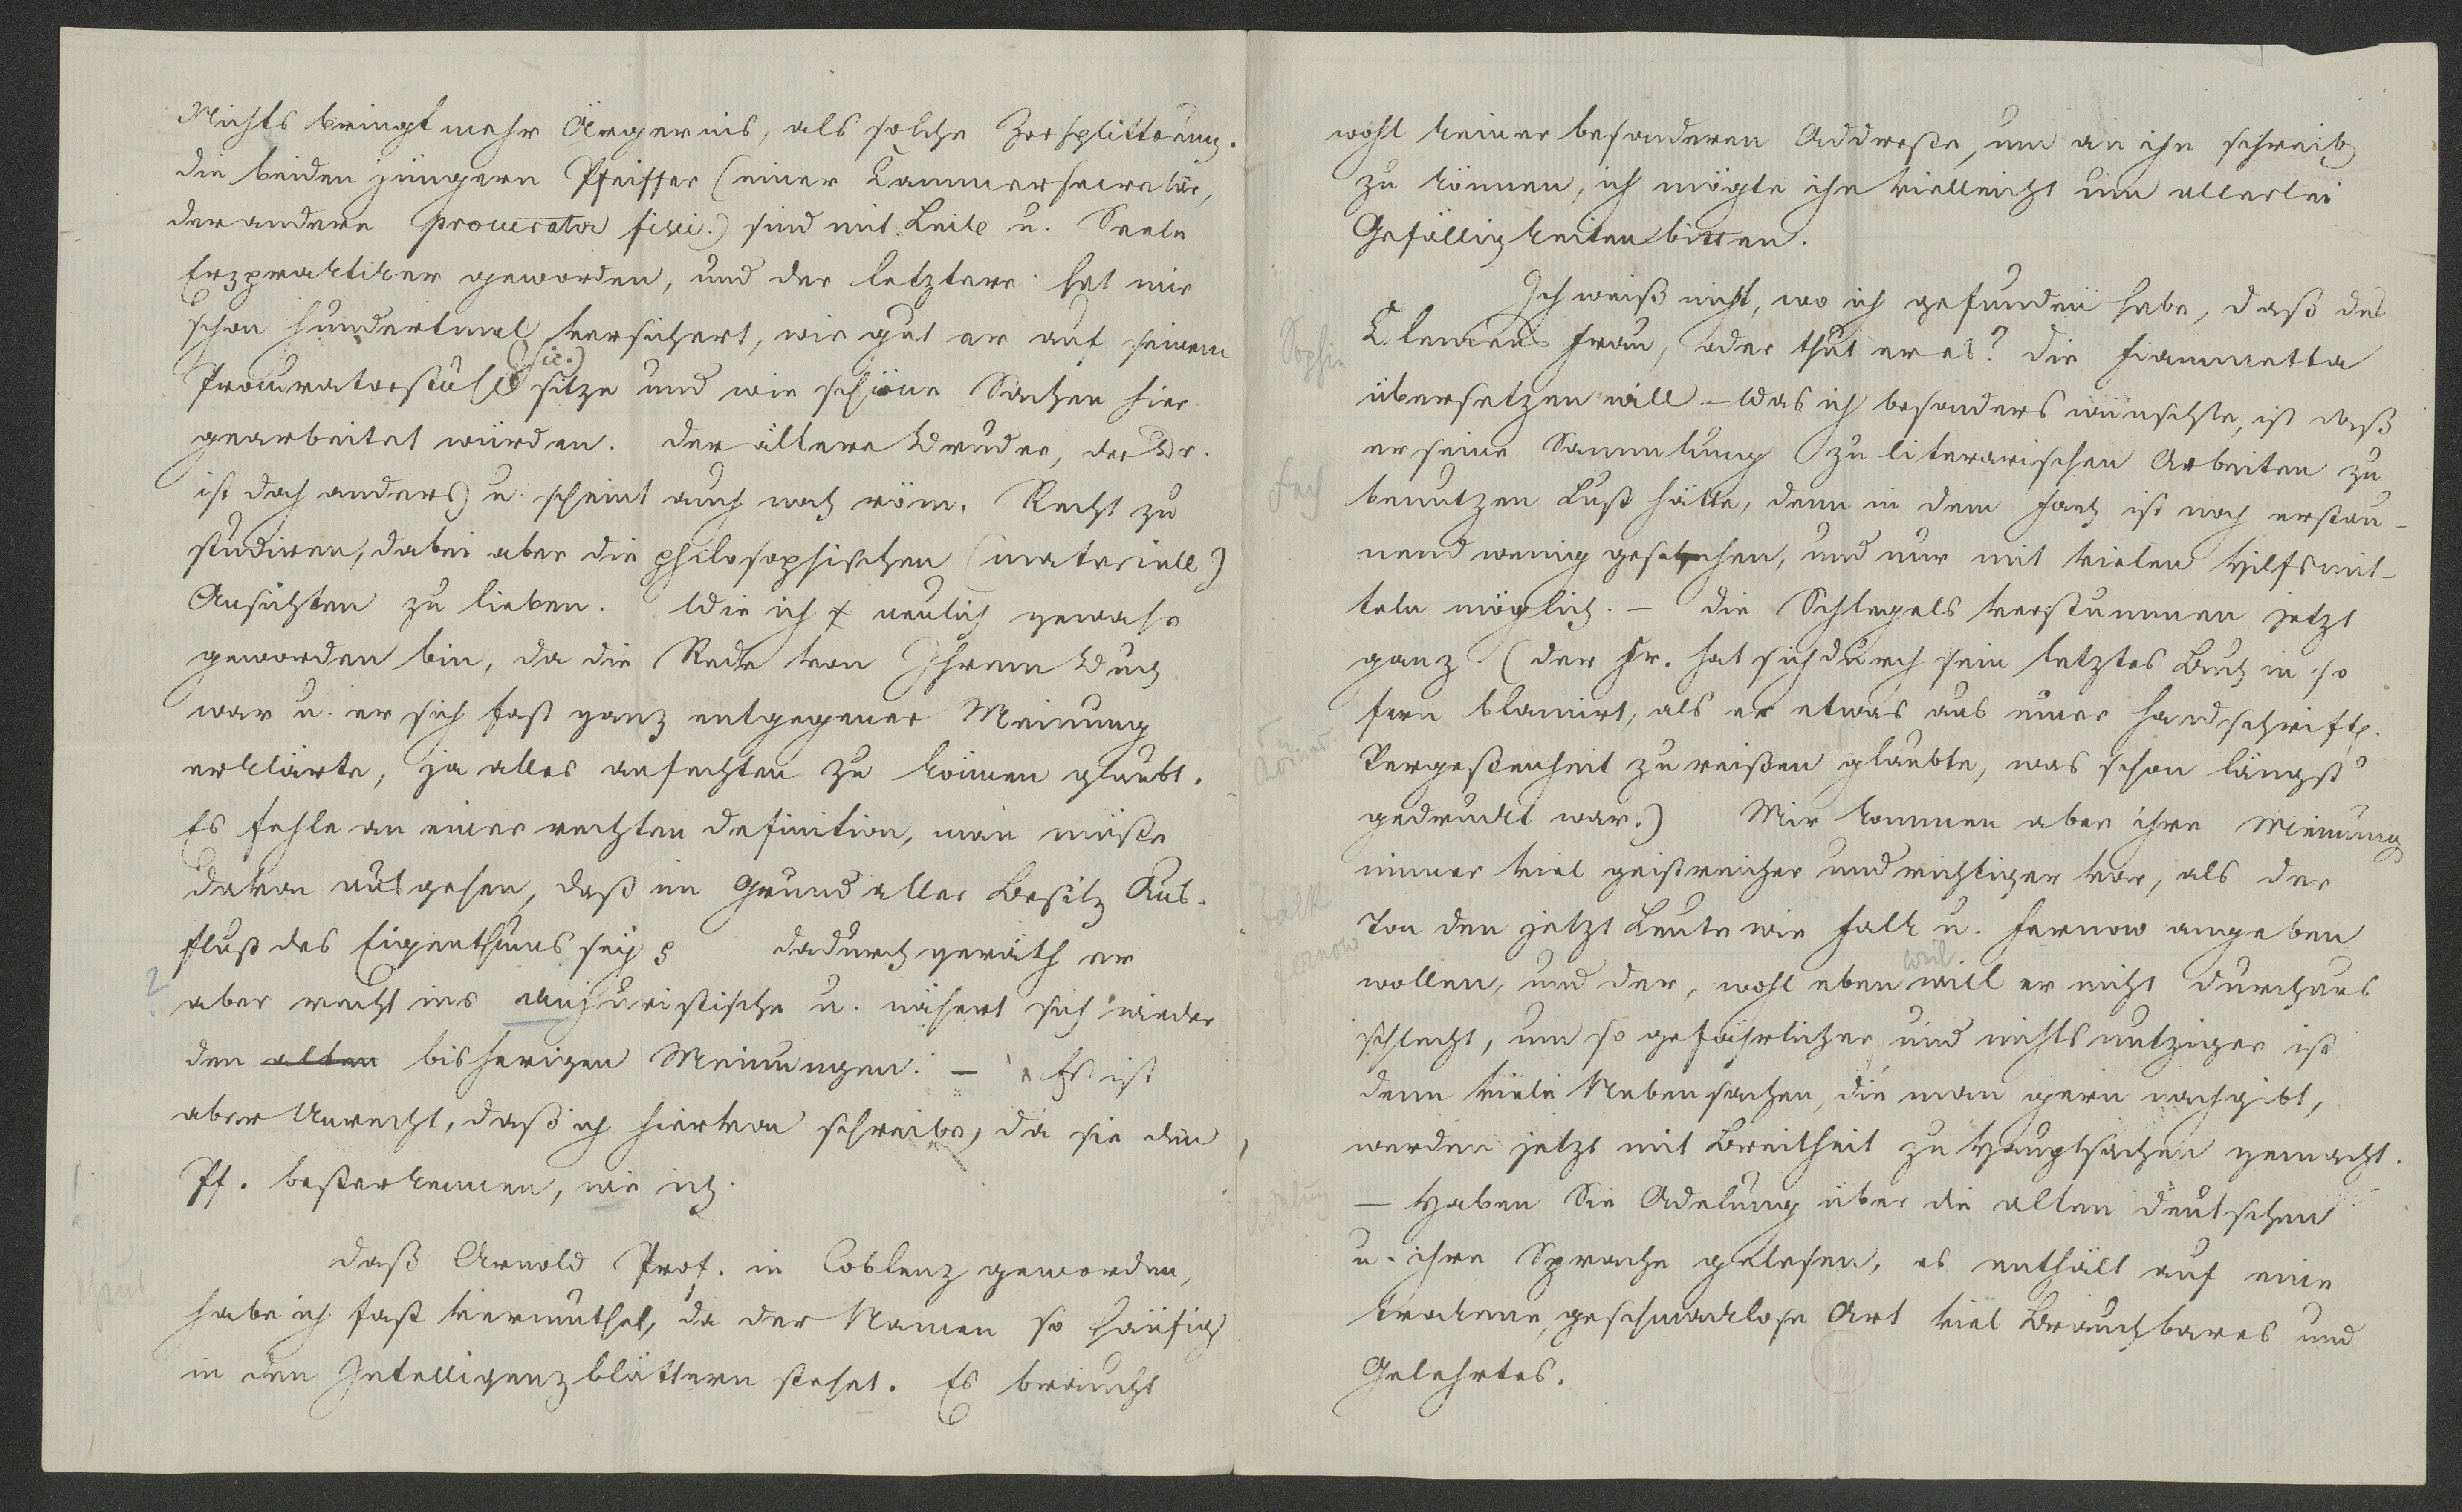 Nichts bringt mehr Ärgernis, als solche Zersplitterung.
die beiden jüngern Pfeiffer (einer Cammersecretär,
der andere procurator fisci.) sind mit Leib u. Seele
Erzpraktiker geworden, und der letztere hat mir
schon hundertmal versichert, wie gut er auf seinem
(sic.)
Procuratorstuhl sitze und wie schöne Sachen hier
gearbeitet würden. der ältere Bruder, der Dr.
ist doch anders) u. scheint auch noch röm. Recht zu
studiren, dabei aber die philosophischen (materiell)
Ansichten zu lieben. Wie ich neulich gewahr
geworden bin, da die Rede von Ihrem Buch
war u. er sich fast ganz entgegener Meinung
erklärte, ja alles anfechten zu können glaubt.
Es fehle an einer rechten definition, man müße
davon ausgehen, daß im Grund aller Besitz Aus-
fluß des Eigenthums sey dadurch geräth er
aber recht ins Unjuristische u. nähert sich wieder
den alten bisherigen Meinungen. — Es ist
aber Unrecht, daß ich hiervon schreibe, da sie den
Pf. beßer kennen, wie ich.
daß Arnold Prof. in Coblenz geworden,
habe ich fast vermuthet, da der Namen so häufig
in den Intelligenzblättern stehet. Es braucht
wohl keiner besonderen Addresse, um an ihn schreib
zu können, ich mögte ihn vielleicht um allerlei
Gefälligkeiten bitten.
Ich weiß nicht, wo ich gefunden habe, daß des
Sophie
Clemens Frau, oder thut er es? die Fiammetta
übersetzen will — Was ich besonders wünschte, ist daß
er seine Sammlung zu literarischen Arbeiten zu
Fach
benutzen Lust hätte, denn in dem Fach ist noch erstau-
nend wenig geschehen, und nur mit vielen Hilfsmit-
teln möglich. — die Schlegels verstummen jetzt
ganz (der Fr. hat sich durch sein letztes Buch in so
fern blamirt, als er etwas aus einer handschriftl.
Vergeßenheit zu reißen glaubte, was schon längst
gedruckt war.) Mir kommen aber ihre Meinung
immer viel geistreicher und richtiger vor, als der
Falk
Ton den jetzt Leute wie Falk u. Fernow angeben
Fernow
weil
wollen, und der, wohl eben will er nicht durchaus
schlecht, um so gefährlicher und nichtsnutziger ist
denn viele Nebensachen, die man gern nachgibt,
werden jetzt mit Breitheit zu Hauptsachen gemacht.
Adelung
— Haben Sie Adelung über die alten deutschen
u. ihre Sprache gelesen, es enthält auf eine
trockene, geschmacklose Art viel Brauchbares und
Gelehrtes.